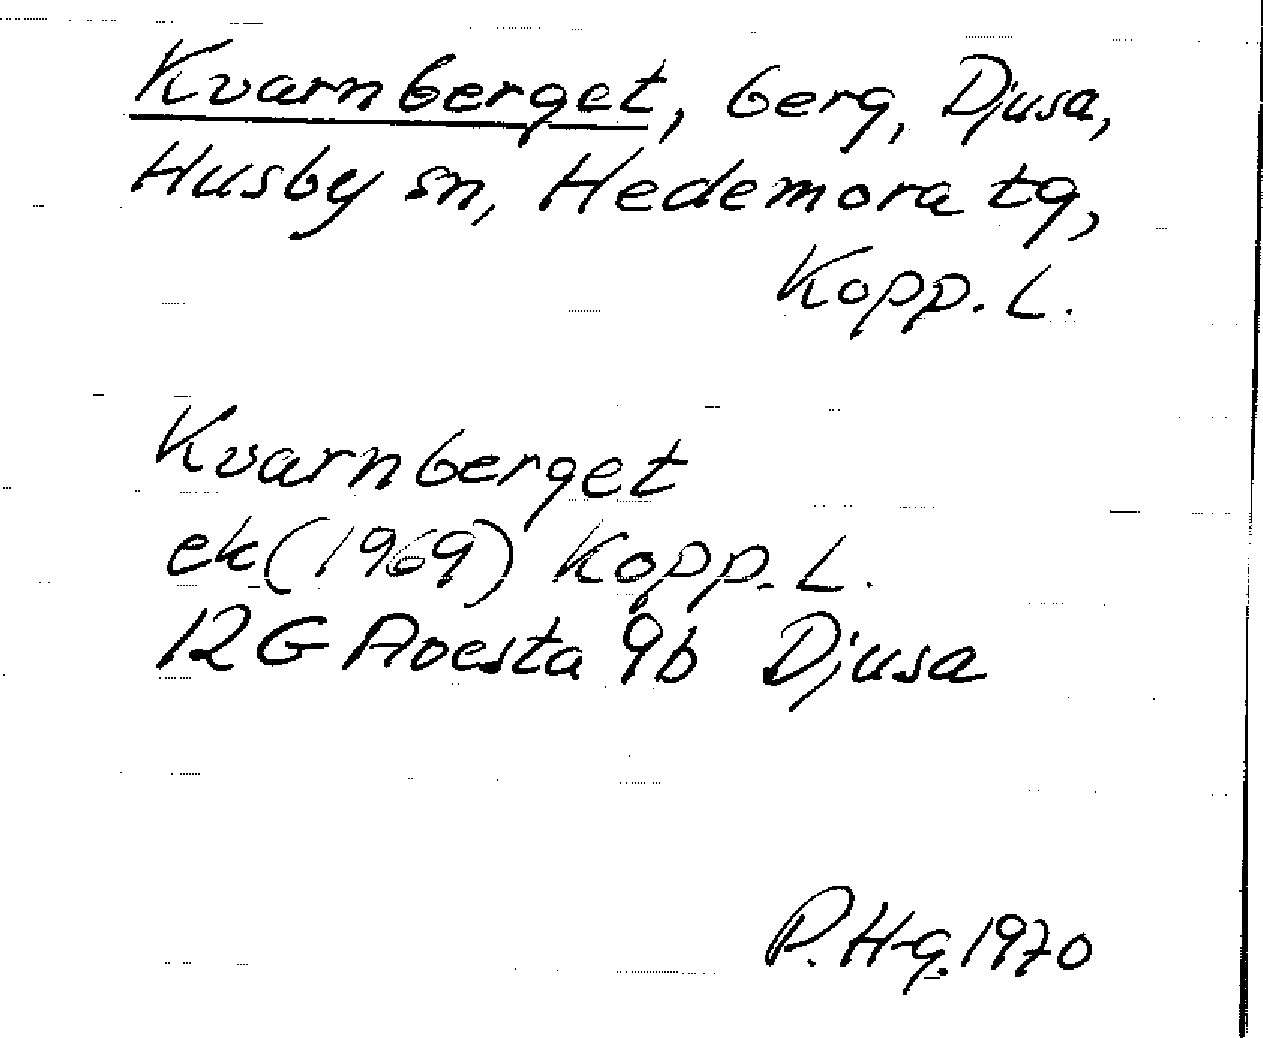 Kvarnberget, berg, Djusa,
Husby sn, Hedemora tg,
Kopp. L.
Kvarnberget
ek (1969) Kopp. L.
12G Avesta 9b Djusa
P. H-g. 1970